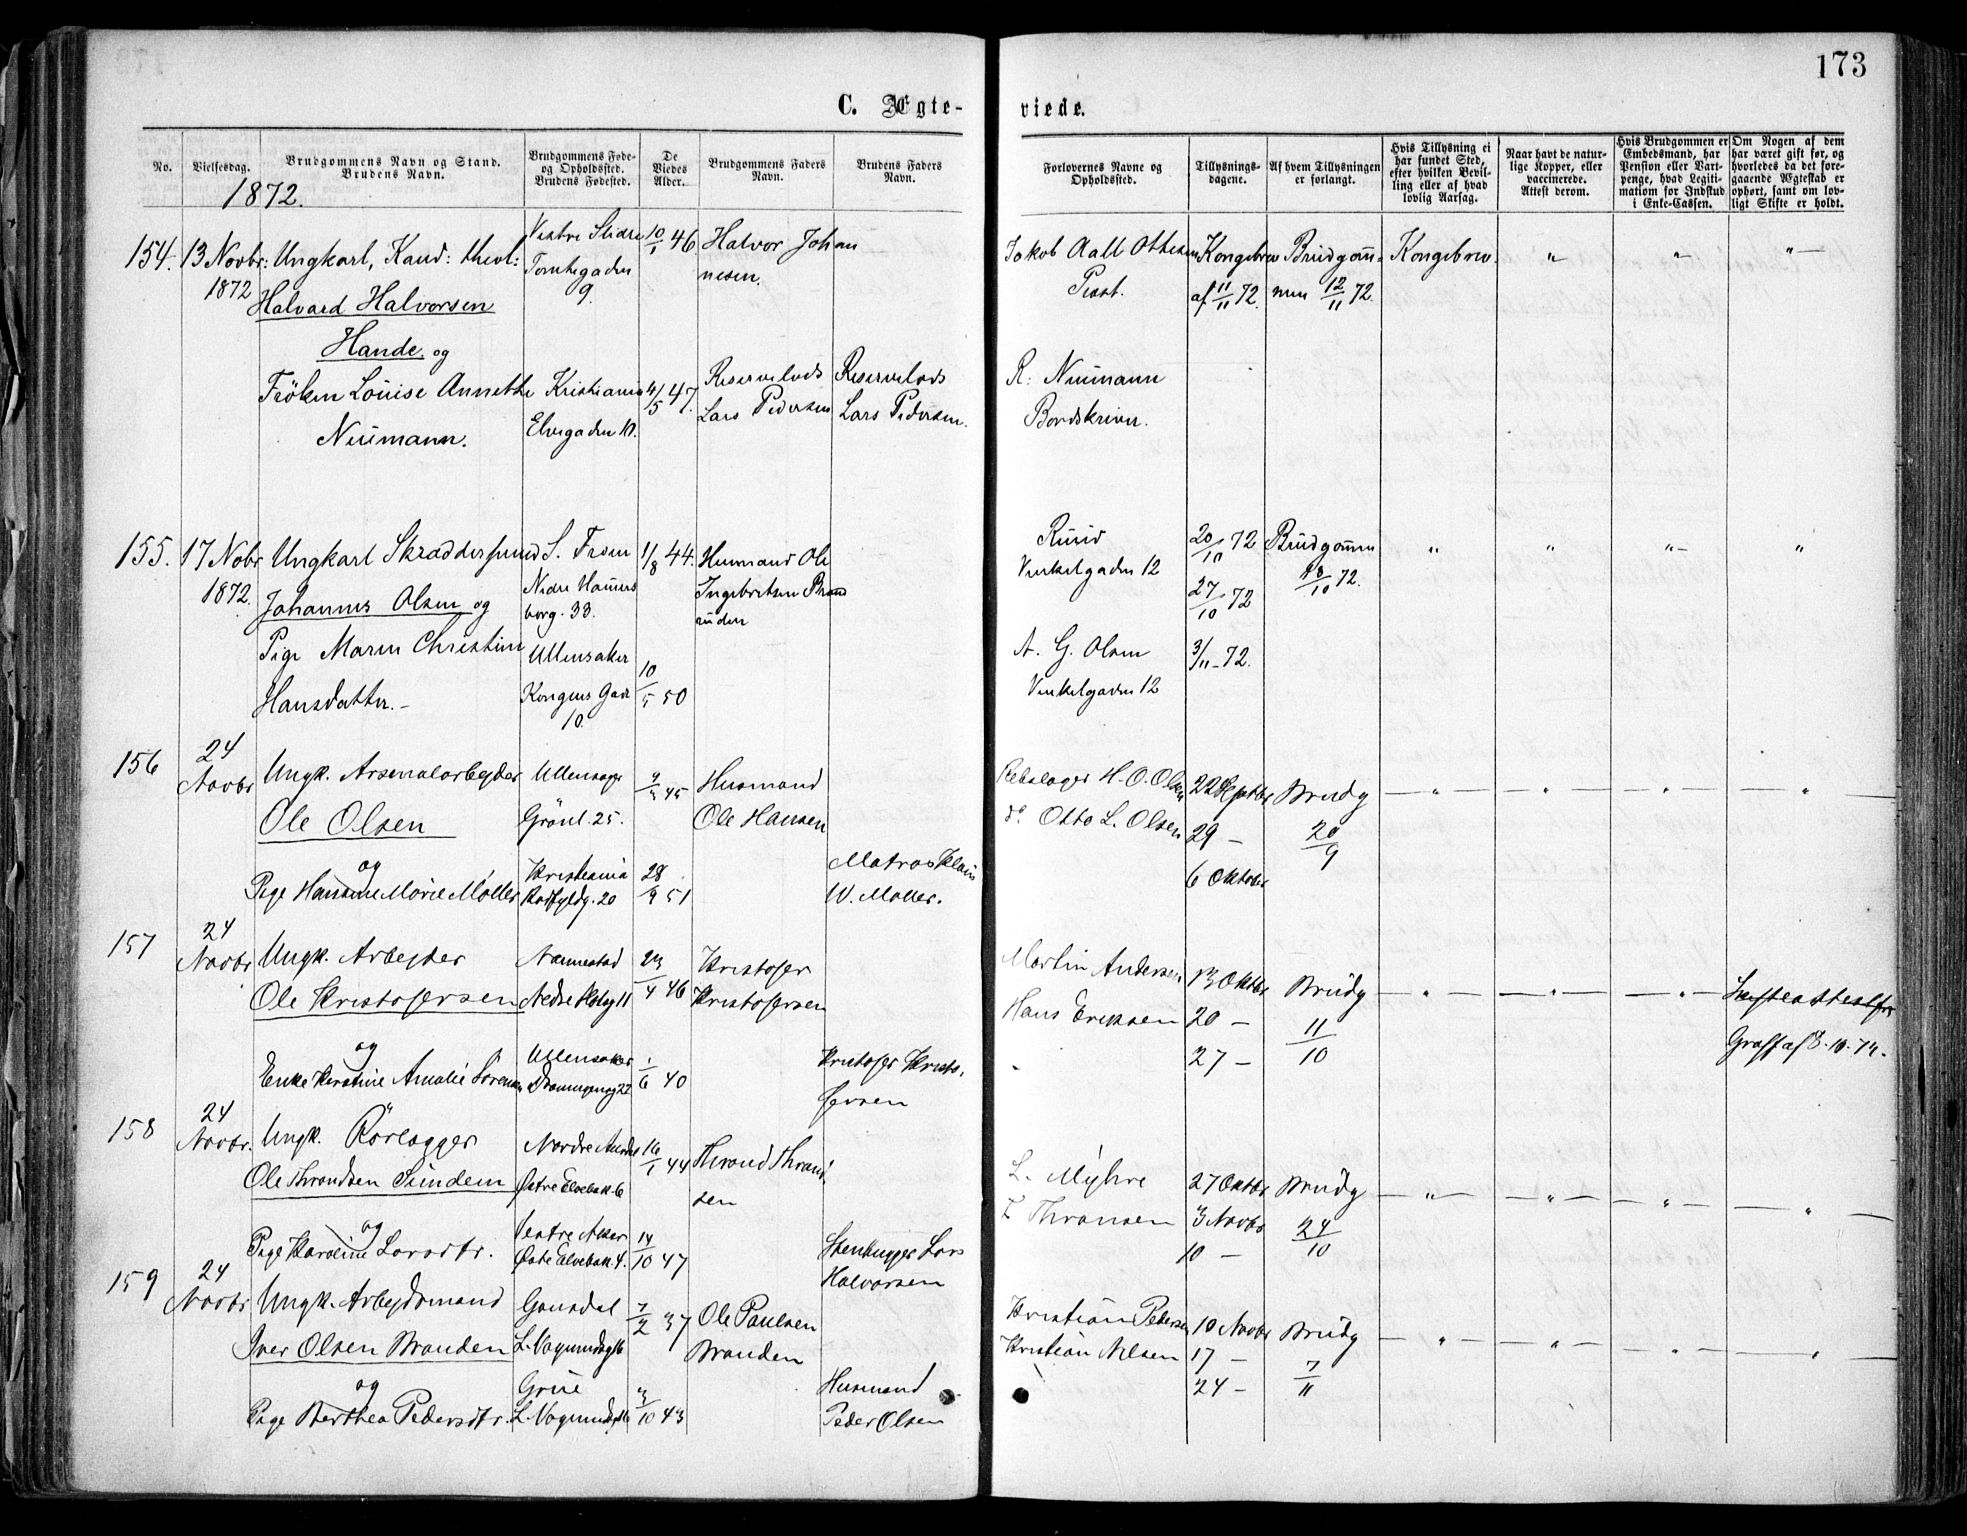 173
C. Ægte-
viede.
No.
Vielsesdag.
Brudgommens Navn og Stand.
Brudens Navn.
Brudgommens Føde-
og Opholdssted.
Brudens Fødested.
De
Viedes
Alder.
Brudgommens Faders
Navn.
Brudens Faders
Navn.
Forlovernes Navne og
Opholdssted.
Tillysnings-
dagene.
Af hvem Tillysningen
er forlangt.
Hvis Tillysning ei
har fundet Sted,
efter hvilken Bevil-
ling eller af hvad
lovlig Aarsag.
Naar havt de natur-
lige Kopper, eller
vaccinerede.
Attest derom.
Hvis Brudgommen er
Embedsmand, har
Pension eller Vart-
penge, hvad Legiti-
mation for Indskud
i Enke-Cassen.
Om Nogen af dem
har været gift før, og
hvorledes da det fore-
gaaende Ægteskab er
ophørt, samt om lov-
ligt Skifte er holdt.
1872.
154. 13 Novbr: Ungkarl, Kand: theol: Vestre Slidre 10/1 46 Halvor Johan
1872 Tomtegaden 9. nesen.
Halvard Halvorsen
Hande og
Frøken Louise Annette Kristiania 4/5 47. Reservelods Reservelods
Neumann. Elvegaden 10. Lars Pedersen Lars Pedersen.
Jakob Aall Ottesen Kongebrev Brudgom- Kongebrev. " " "
Prost. af 11/11 72. men 12/11 72.
R: Neumann
Bordskriver.
155. 17 Novbr Ungkarl Skræddersvend S. From 1/8 44. Husmand Ole
1872. Johannes Olsen og Nedre Hammers Ingebretsen Brand
borg. 33. ruden
Pige Maren Christine Ullensaker 10/5 50
Hansdatter. Kongens Gade
10.
Ruud 20/10 72 Brudgommen " " " "
Vinkelgaden 12 27/10 72 18/10 72.
A. G. Olsen 3/11 - 72.
Vinkelgaden 12
156 24 Ungk. Arsenalarbejder Ullensager 45 Husmand
Novbr Ole Olsen Grønl. 25. Ole Hansen
og
Pige Hansine Marie Møller Kristiania 28/9 51 Matros Klaus
20 W. Møller.
Rebslager H. O. Olsen 22 Septbr Brudg " " " "
do Otto L. Olsen 29 - 20/9
6 Oktober
157 24 Ungk. Arbejder Nannestad 23/4 46 Kristofer
Novbr Ole Kristofersen 11 Kristofersen
og
Enke Kerstine Amalie Sørensen Ullensaker 1/6 40 Kristofer Kristo-
fersen
Martin Andersen 13 Oktbr Brudg " " " Skifteattest fra
Hans Eriksen 20 - 11/10 Graff af 8.10.72.
27 -
158 24 Ungk. Rørlægger Nordre Aurdal 16/1 44 Thrond Thrond
Novbr. Ole Throndsen Sundem Østre Elvebak. 6 sen
og
Pige Karoline Larsdtr. Vestre Aker 14/10 47 Stenhugger Lars
Østre Elvebak. 4. Halvorsen
L. Myhre 27 Oktbr Brudg " " " "
Thronsen 3 Novbr 24/10
10 -
159 24 Ungk. Arbejdsmand Gausdal 7/2 37 Ole Paulsen
Novbr Iver Olsen Branden Branden
og
Pige Berthea Pedersdtr. Grue 3/10 43 Husmand
Peder Olsen
Kristian Pedersen 10 Novbr Brudg " " " "
Kristian Nilsen 17 - 7/11
24 -